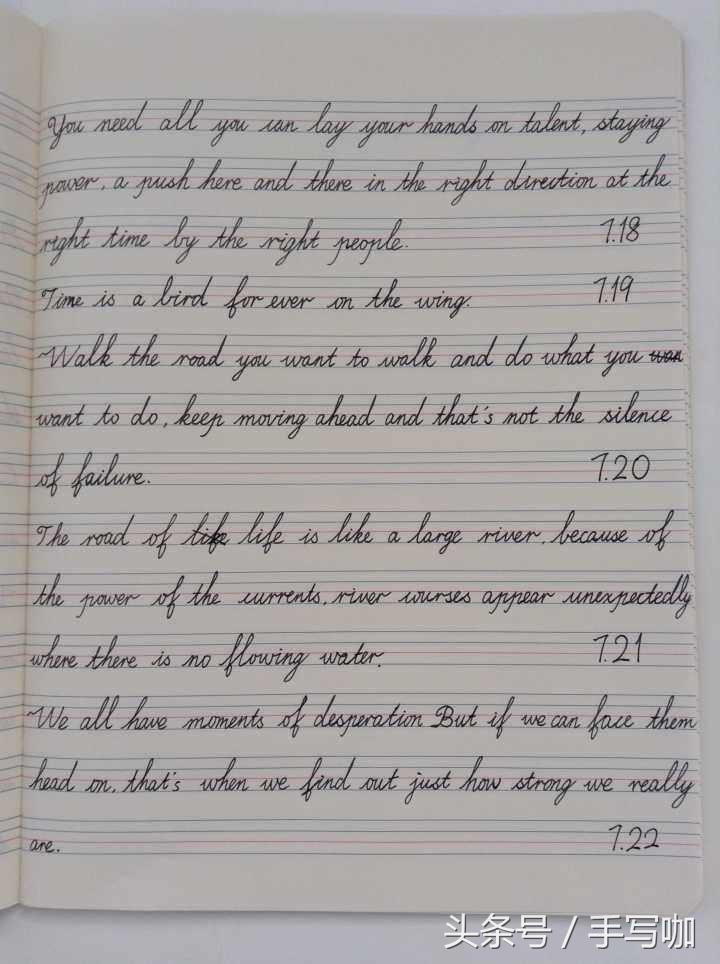 You need all you can lay your hands on talent, staying
power, a push here and there in the right direction at the
right time by the right people. 7.18
Time is a bird for ever on the wing. 7.19
Walk the road you want to walk and do what you wan
want to do, keep moving ahead and that's not the silence
of failure. 7.20
The road of like life is like a large river, because of
the power of the currents, river courses appear unexpectedly
where there is no flowing water. 7.21
We all have moments of desperation But if we can face them
head on, that's when we find out just how strong we really
are. 7.22
头条号 / 手写咖